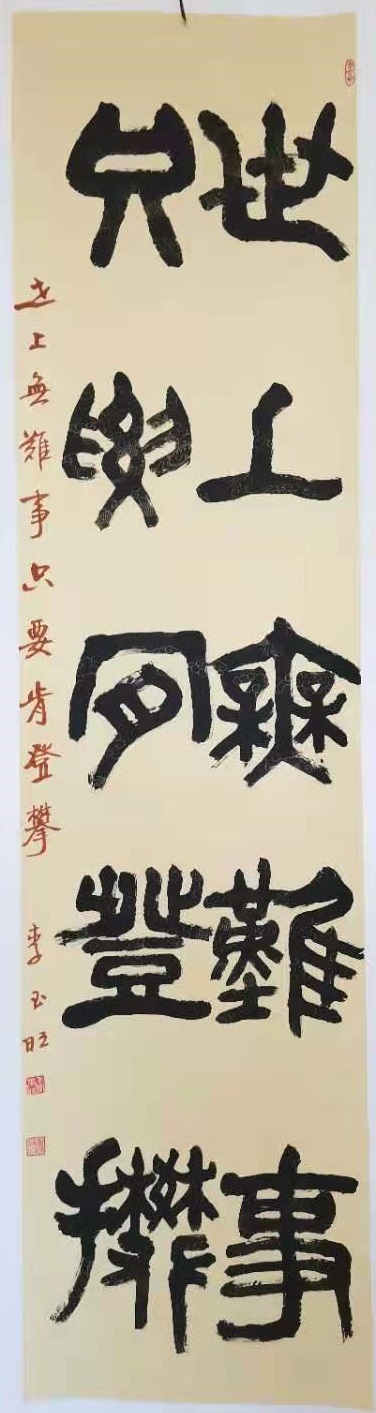 世上無難事
只要肯登攀
世上無難事只要肯登攀 李玉旺